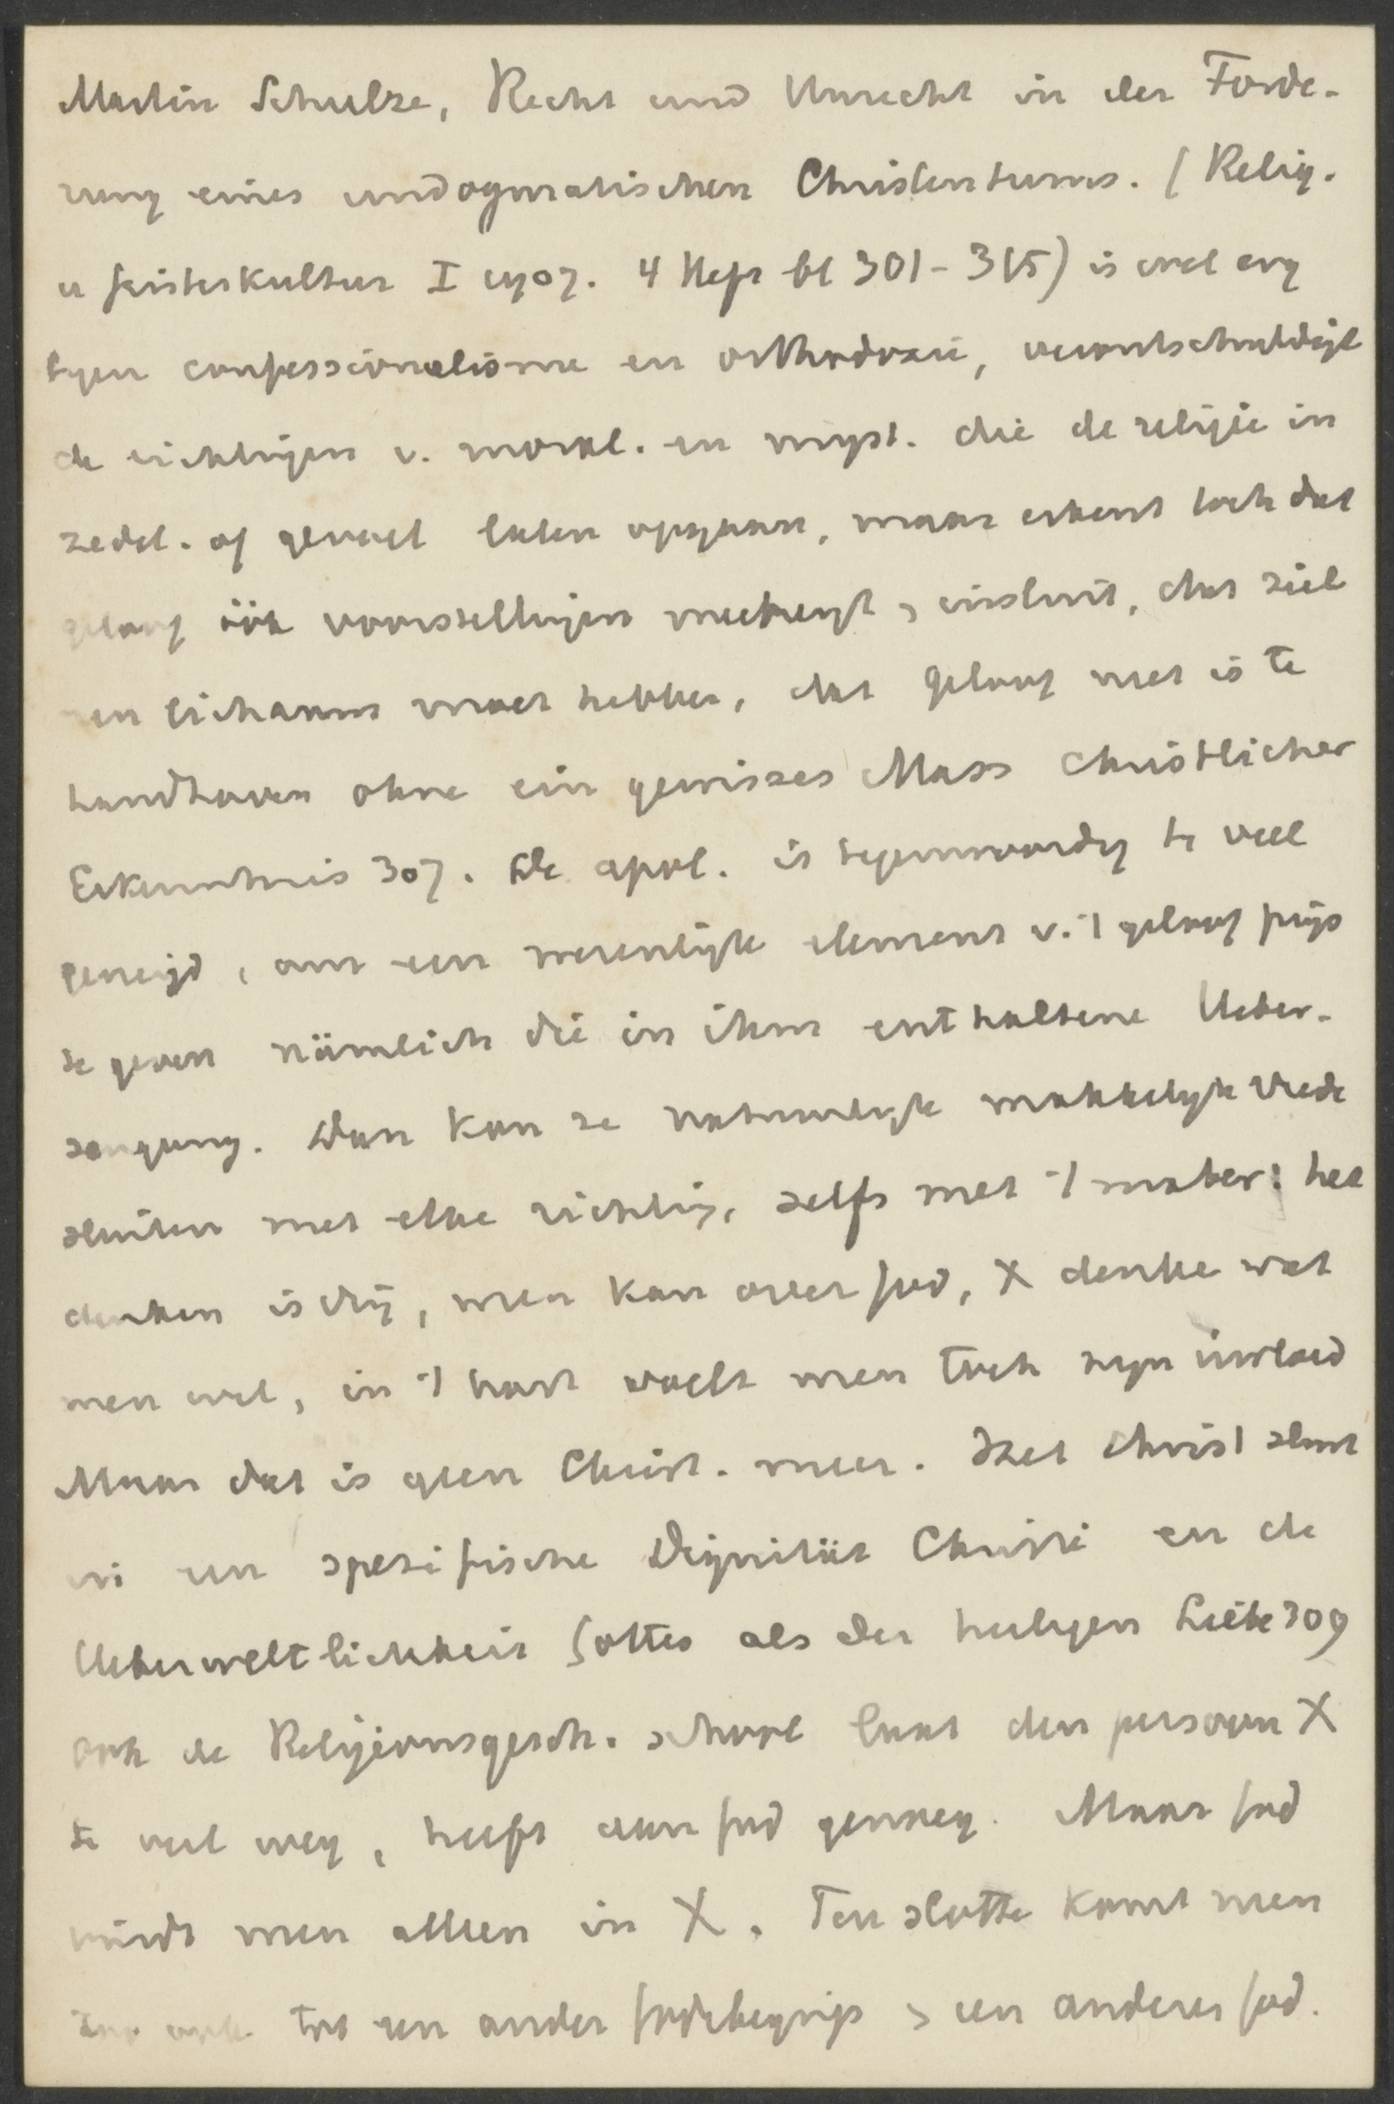 Martin Schulze, Recht und Unrecht in der Forde-
rung eines undogmatischen Christentums. (Relig.
u Geisteskultur I 1907. 4 Heft bl 301-315) is wel erg
tegen confessionalisme en orthodoxie, verontschuldigt
de richtingen v. moral. en myst. die de religie in
zedel. of gevoel laten opgaan, maar erkent toch dat
geloof óók voorstellingen meebrengt, insluit, dat ziel
een lichaam moet hebben, dat geloof niet is te
handhaven ohne ein gewisses Mass christlicher
Erkenntnis 307. De apol. is tegenwoordig te veel
geneigd, om een wezenlijk element v. 't geloof prijs
te geven nämlich die in ihm enthaltene Ueber-
zeugung. Dan kan ze natuurlijk makkelijk vrede
sluiten met elke richting, zelfs met 't mater: het
denken is vrij, men kan over God, X denke wat
men wil, in 't hart voelt men toch zijn invloed
Maar dat is geen Christ. meer. Het Christ sluit
in een spezifische Dignität Christi en de
Ueberweltlichkeit Gottes als der heiligen Liebe 309
Ook de Religionsgesch. school laat den persoon X
te veel weg, heeft aan God genoeg. Maar God
vindt men alleen in X. Ten slotte komt men
dan ook tot een ander Godsbegrip, een anderen God.